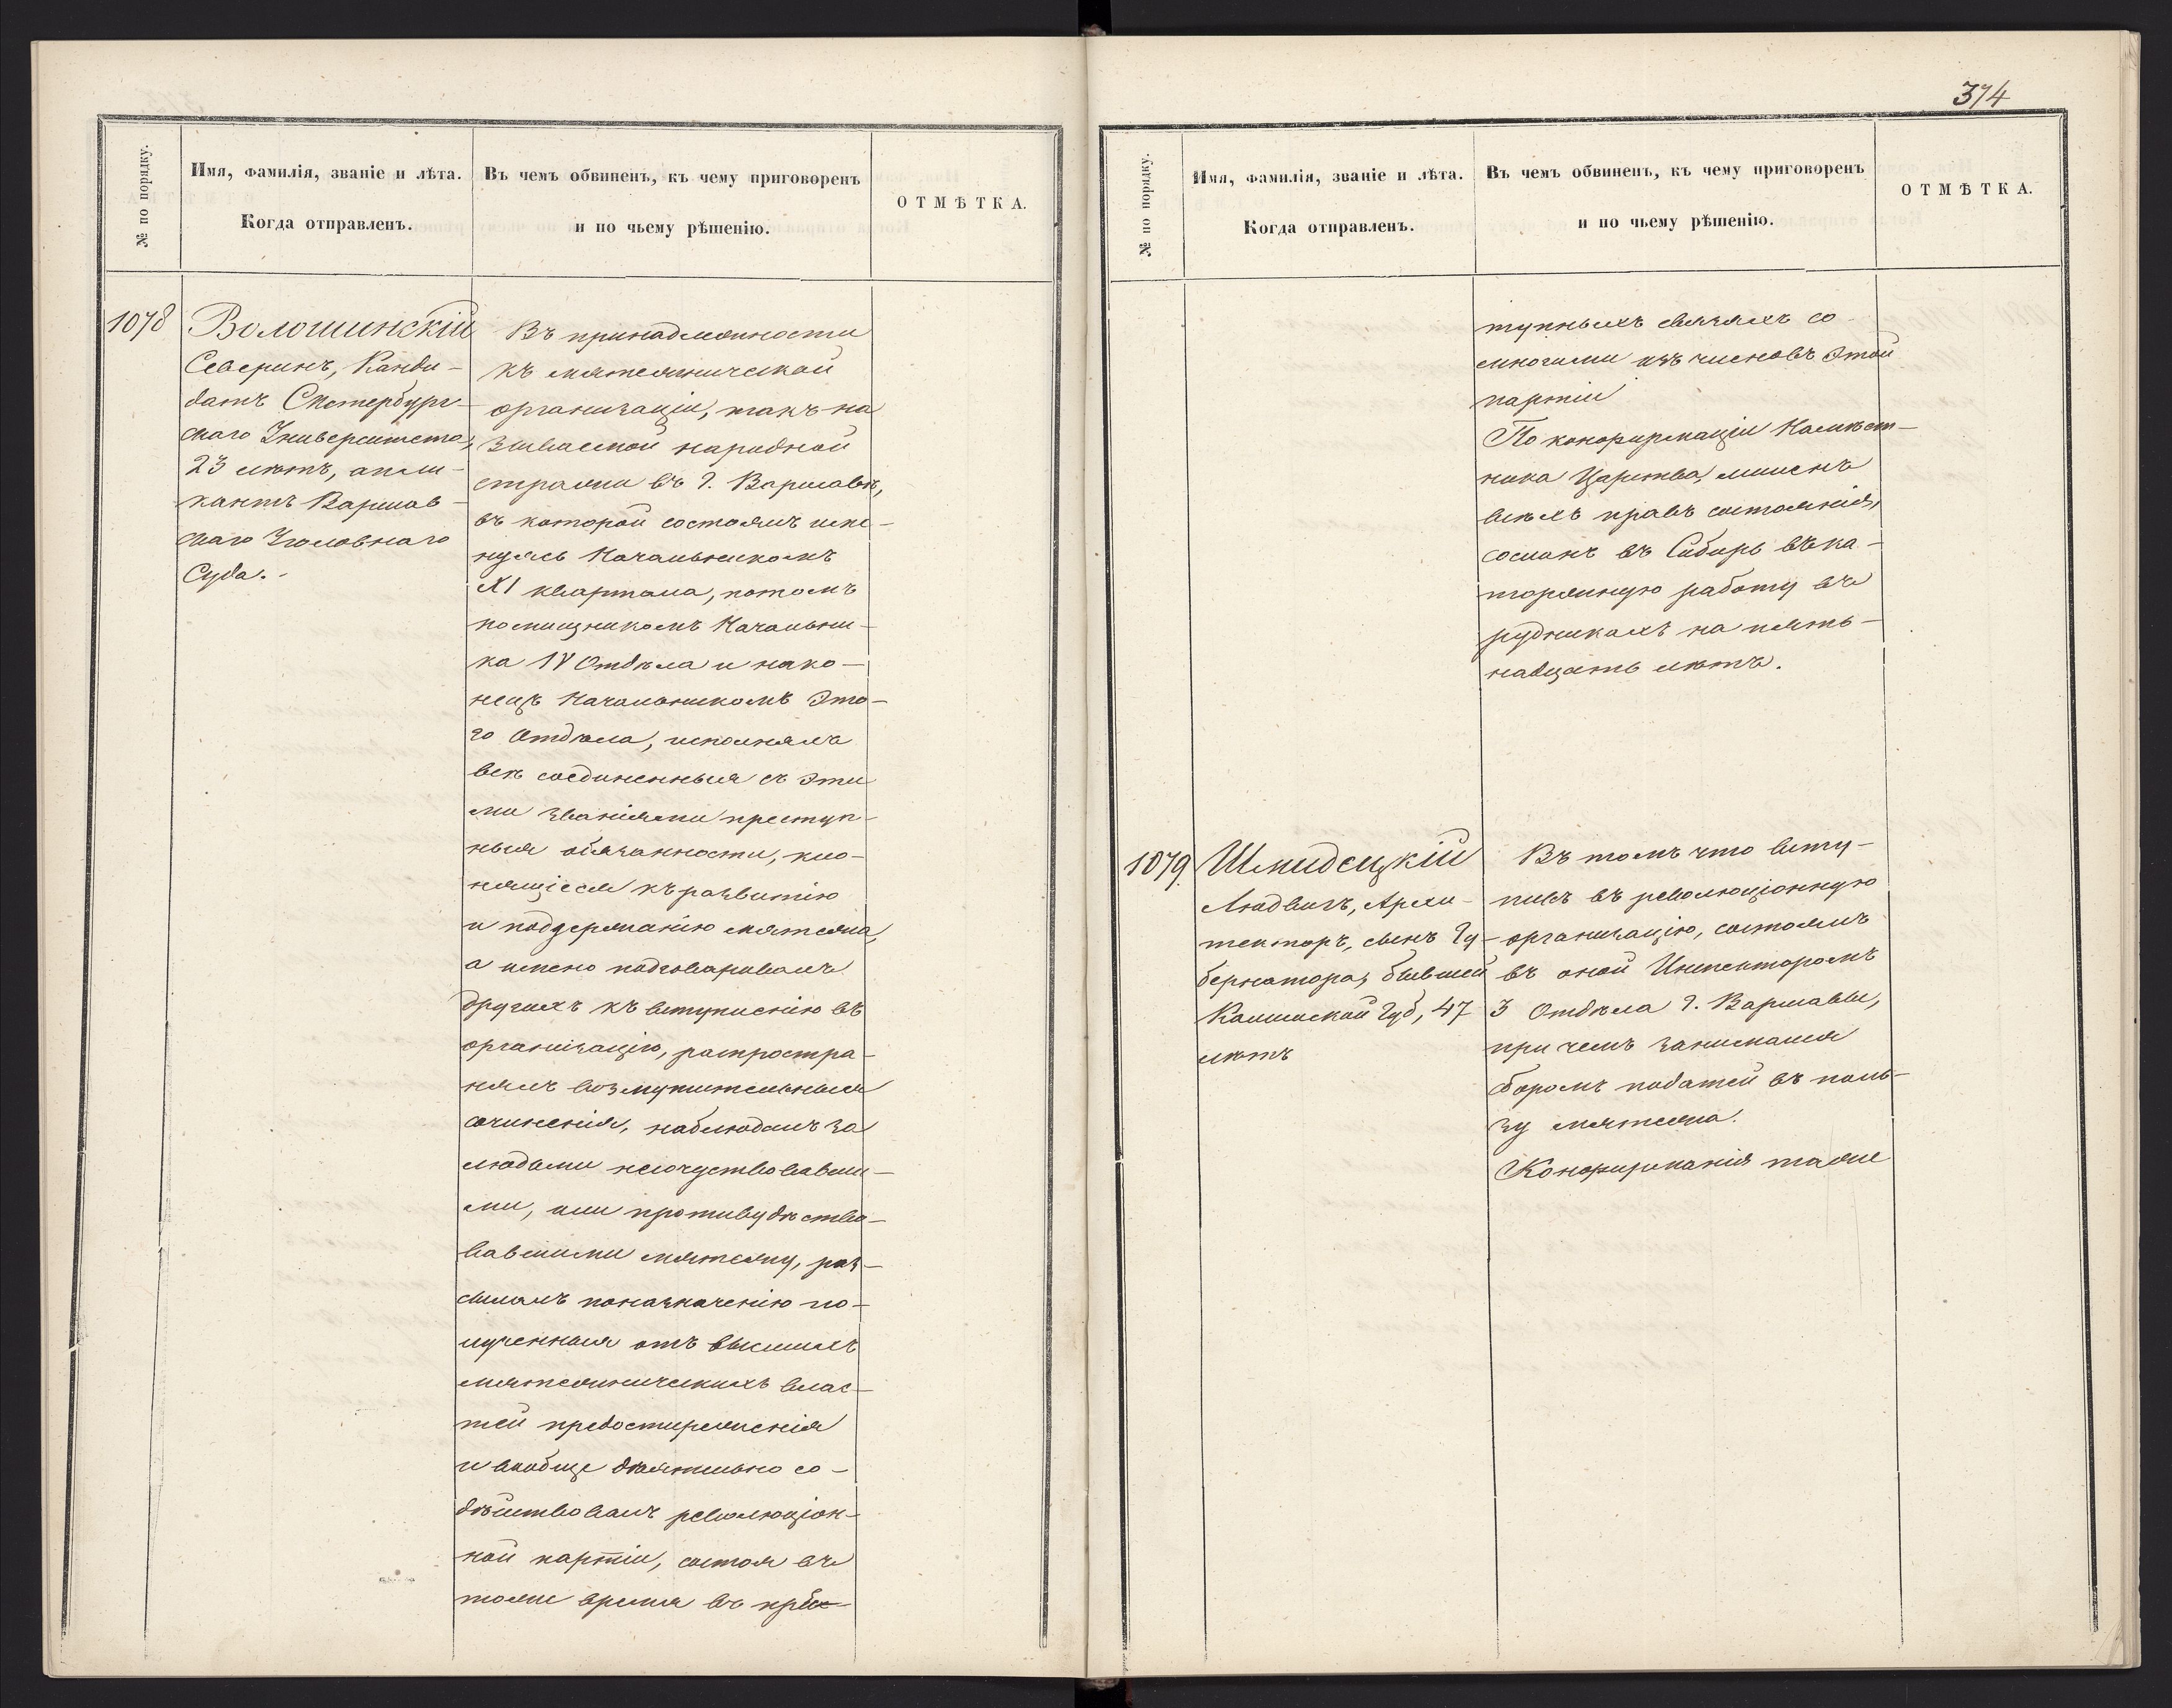 374
№ по порядку.
Имя, фамилія, званіе и лѣта.
Когда отправленъ.
Въ чемъ обвиненъ, къ чему приговоренъ
и по чьему рѣшенію.
ОТМѢТКА.
1078
Волошинскій
Северинъ, Канди-
датъ СПетербург-
скаго Университета,
23 лѣтъ, апли-
кантъ Варшав-
скаго Уголовнаго
Суда.-
Въ принадлежности
къ мятежнической
организаціи, такъ на
зываемой народной
стражи въ г. Варшавѣ,
въ которой состоялъ
Начальникомъ
XI квартала, потомъ
помищникомъ Начальни-
ка IV Отдѣла и нако-
нецъ Начальникомъ это-
го Отдѣла, исполнялъ
всѣ соединенныя съ эти
ми званіями преступ-
ныя обязанности, кло-
нящіеся къ развитію
и поддержанію мятежа,
а имено подговаривалъ
другихъ къ вступленію въ
организацію, распростра-
нялъ возмутительныя
сочиненія, наблюдалъ за
людьми несочуствовавши-
ми, или противудѣство-
вавшими мятежу, раз-
сылалъ поназначенію по-
лученныя отъ высшихъ
мятежническихъ влас-
тей предостереженія
и вообще дѣятельно со-
дѣйствовалъ революціон-
ной партіи, состоя въ
тоже время въ прес-
№ по порядку.
Имя, фамилія, званіе и лѣта.
Когда отправленъ.
Въ чемъ обвиненъ, къ чему приговоренъ
и по чьему рѣшенію.
ОТМѢТКА.
тупныхъ связяхъ со
многими изъ членовъ этой
партіи
По конфирмаціи Намѣст-
ника Царства, лишенъ
всѣхъ правъ состоянія,
сосланъ въ Сибирь въ ка-
торжную работу въ
рудникахъ на пять-
надцать лѣтъ.
1079.
Шмидецкій
Людвигъ, Архи-
текторъ, сынъ Гу-
бернатора, бывшей
Калишской Губ, 47
лѣтъ
Въ томъ что всту-
пивъ въ революціонную
организацію, состоялъ
въ оной Инспекторомъ
3 Отдѣла г. Варшавы,
при чемъ занимался
сборомъ податей въ поль-
зу мятежа.
Конфирмація таже